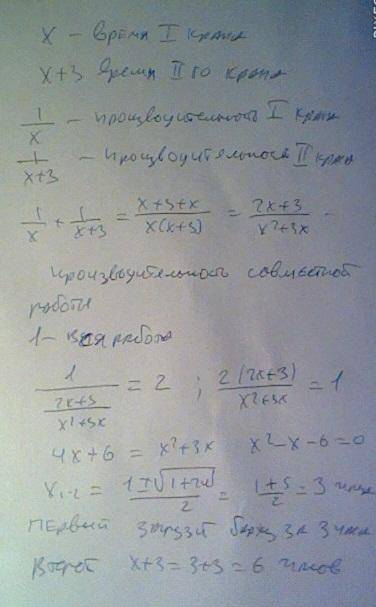 x – время I крана
x+3 время II го крана
1/x – производительность I крана
1/(x+3) – производительность II крана
1/x + 1/(x+3) = (x+3+x)/(x(x+3)) = (2x+3)/(x²+3x) –
производительность совместной
работы
1 – вся работа
1/((2x+3)/(x²+3x)) = 2 ; 2(2x+3)/(x²+3x) = 1
4x+6 = x²+3x x²-x-6=0
x₁,₂ = (1±√(1+24))/2 = (1+5)/2 = 3 часа
первый загрузит баржу за 3 часа
второй x+3=3+3=6 часов